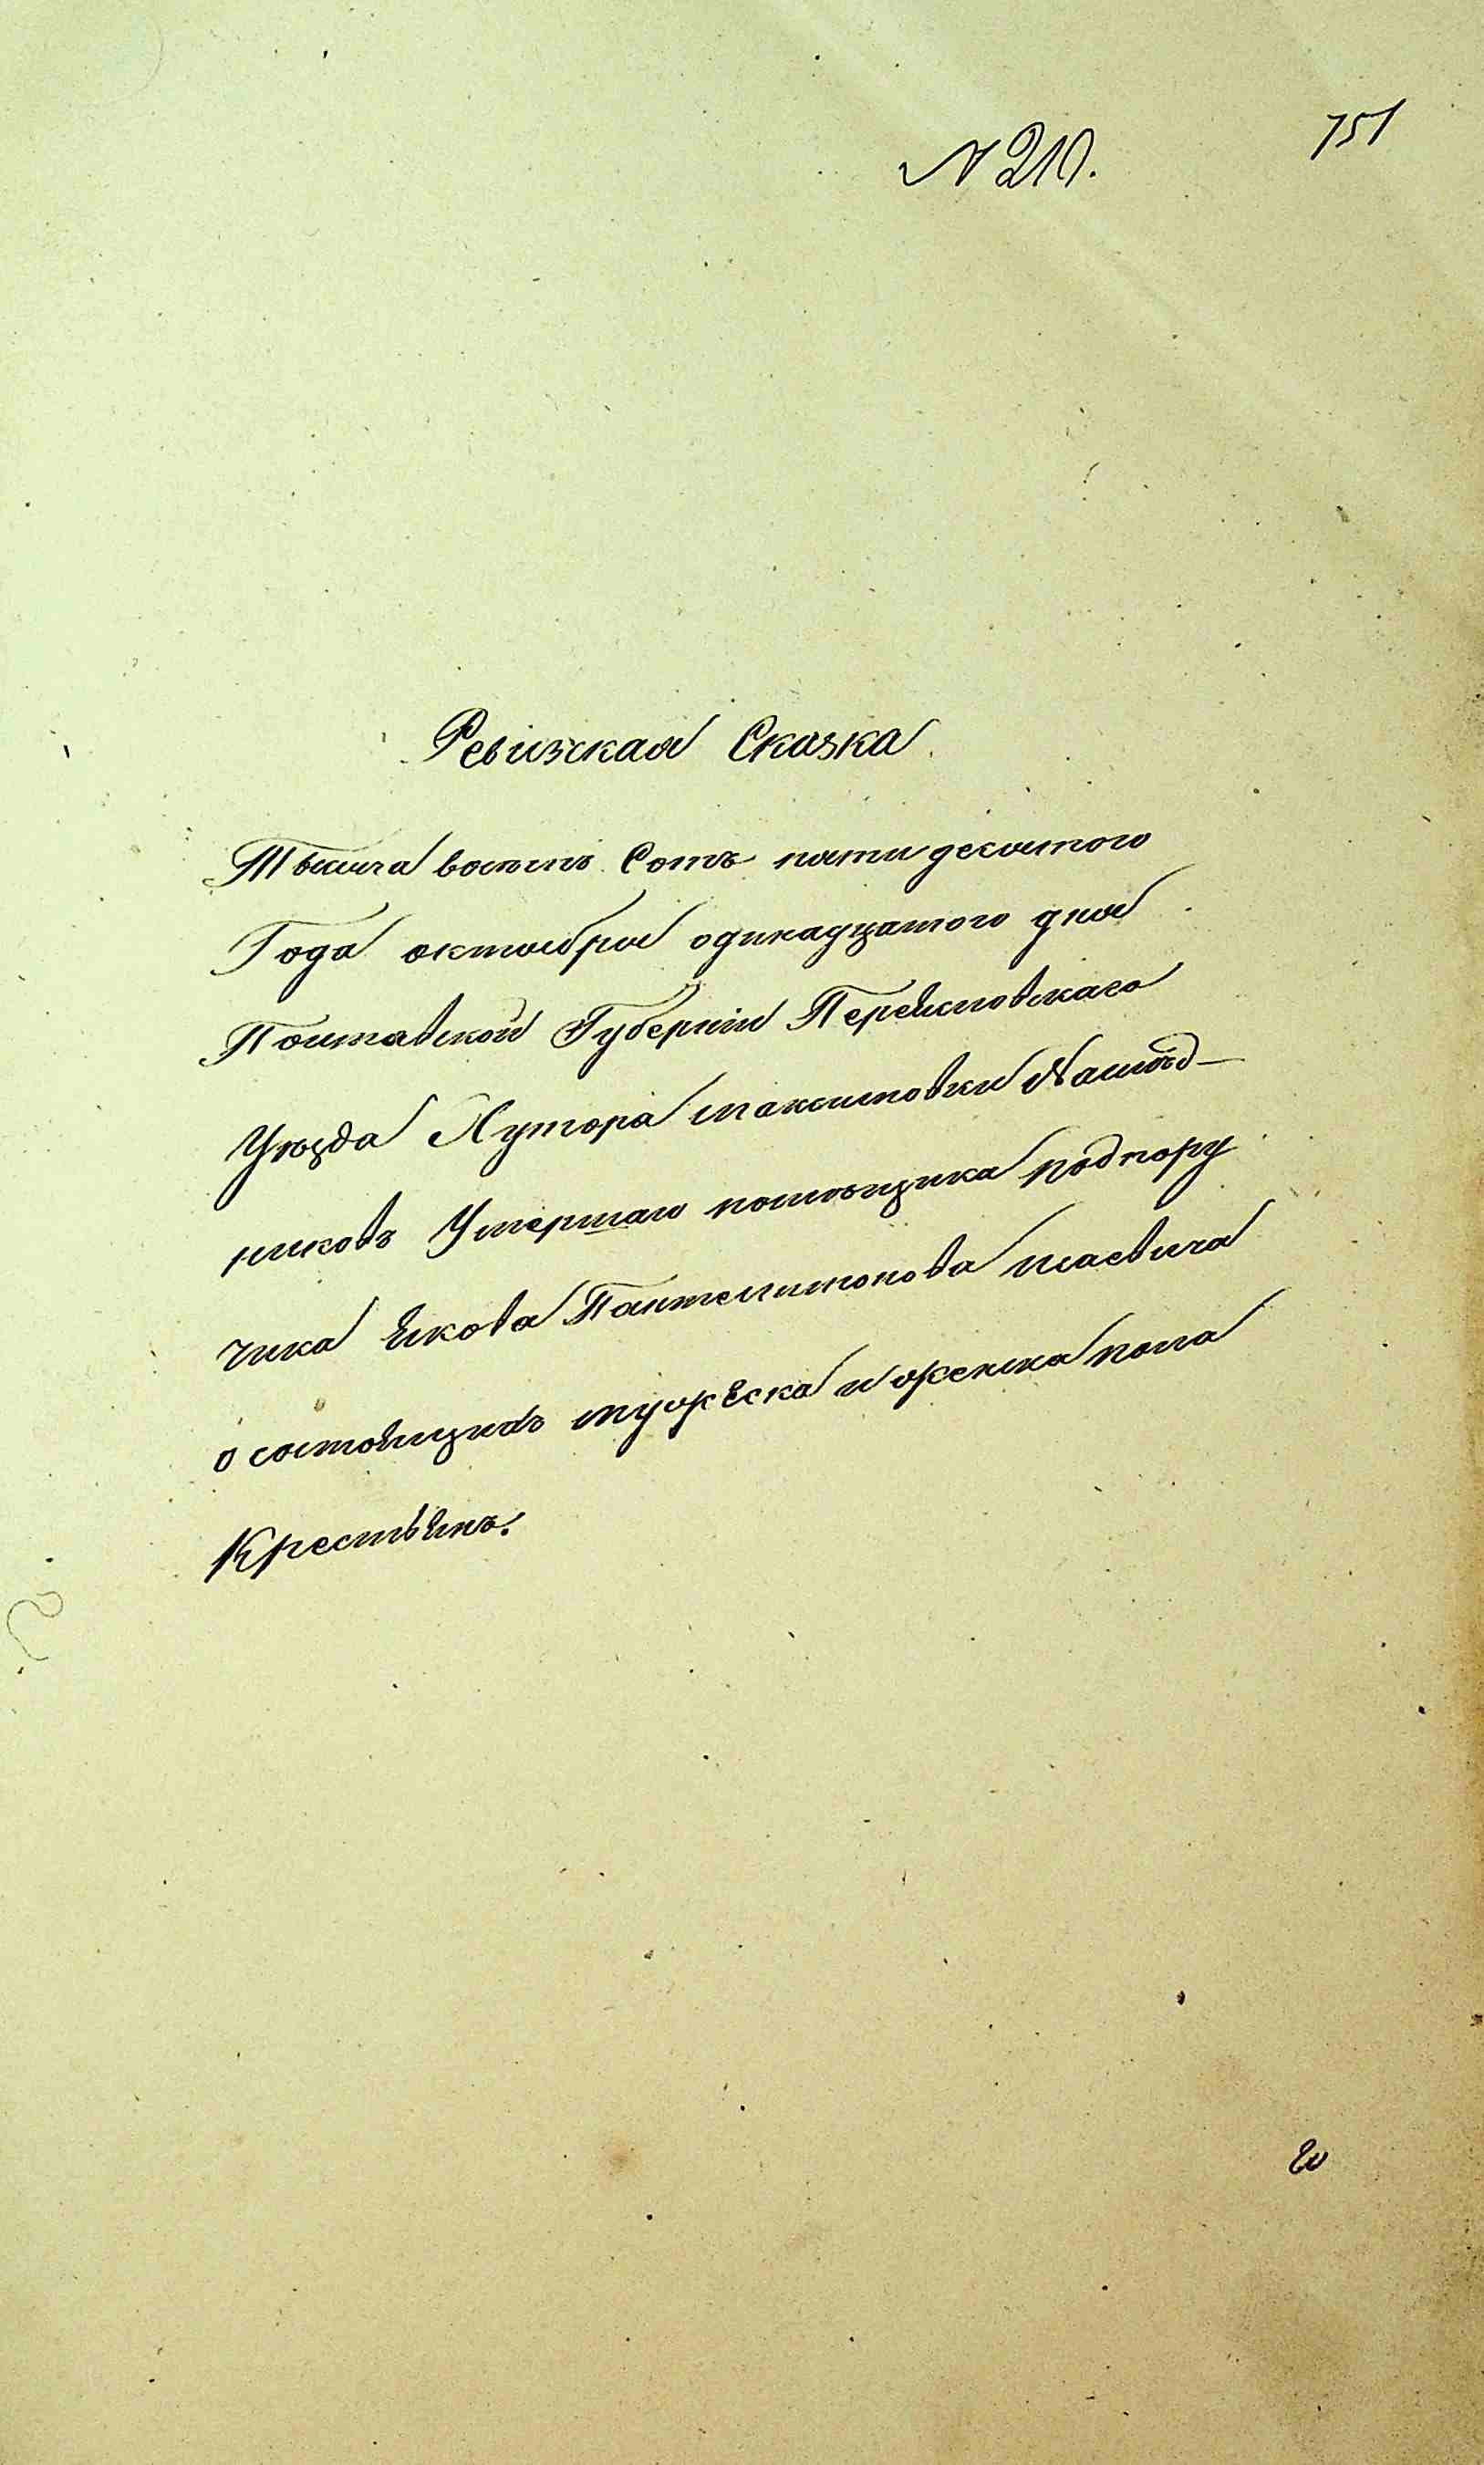 751
№ 210.
Ревизская Сказка
Тысяча восемь Сотъ пятидесятого
Года октября одинадцатого дня
Полтавской Губерніи Переясловскаго
Уѣзда Хутора Максимовки Наслѣд-
никовъ Умершаго помѣщика подпору
чика Якова Пантелимонова Исаевича
о состоящихъ мужеска и женска пола
Крестьянъ.